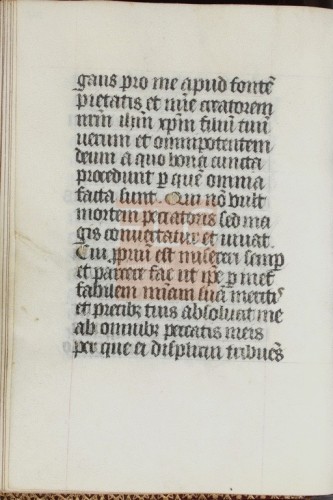 gans pro me apud fonte᷒
pietatis et mīe creatorem
nr̄m ihm xp̄m filiū tuū
uerum et omnipotentem
deum a quo bona cuncta
procedunt ꝑ quē omnia
facta sunt. Qui nō vult
mortem peccatoris sed ma
gis conuertatur et uiuat.
Cui ꝓpriū est misereri semꝑ
et parcere fac ut ipē ꝑ inef
fabilem mīam suā meritꝭ
et precibꝫ tuis absoluat me
ab omnibꝫ peccatis meis
per que ei displicui tribuēs